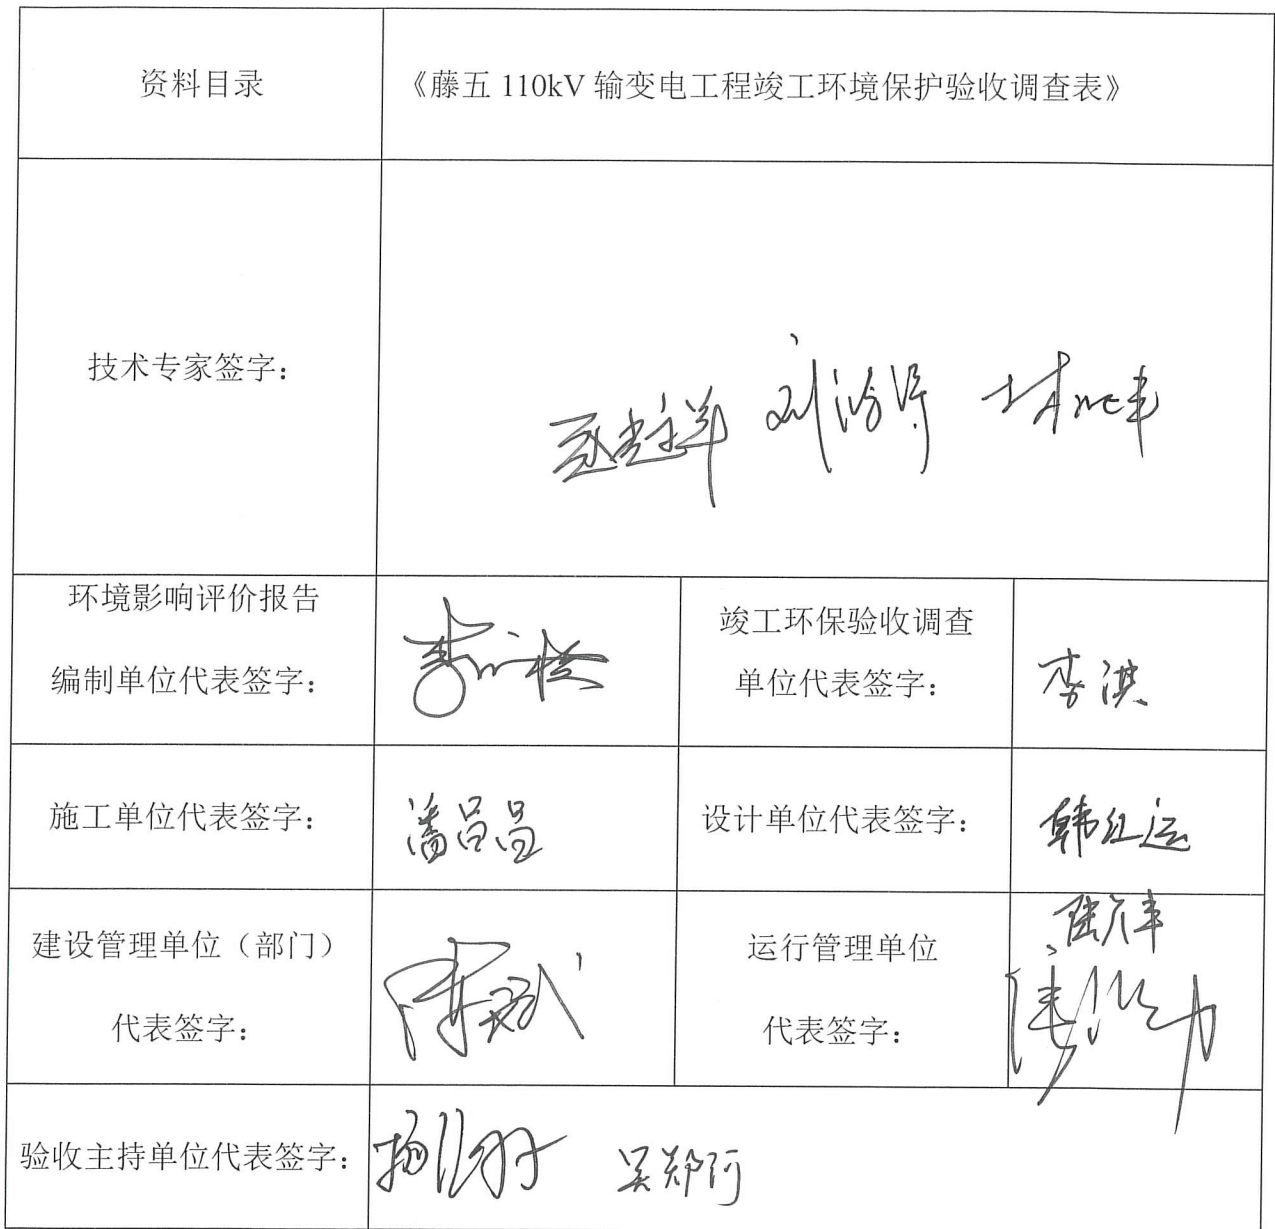 资料目录
《藤五 110kV 输变电工程竣工环境保护验收调查表》
技术专家签字：
环境影响评价报告
编制单位代表签字：
竣工环保验收调查
单位代表签字：
李洪
施工单位代表签字：
潘昌昌
设计单位代表签字：
韩红运
建设管理单位（部门）
代表签字：
陈斌
运行管理单位
代表签字：
验收主持单位代表签字：
吴郑河